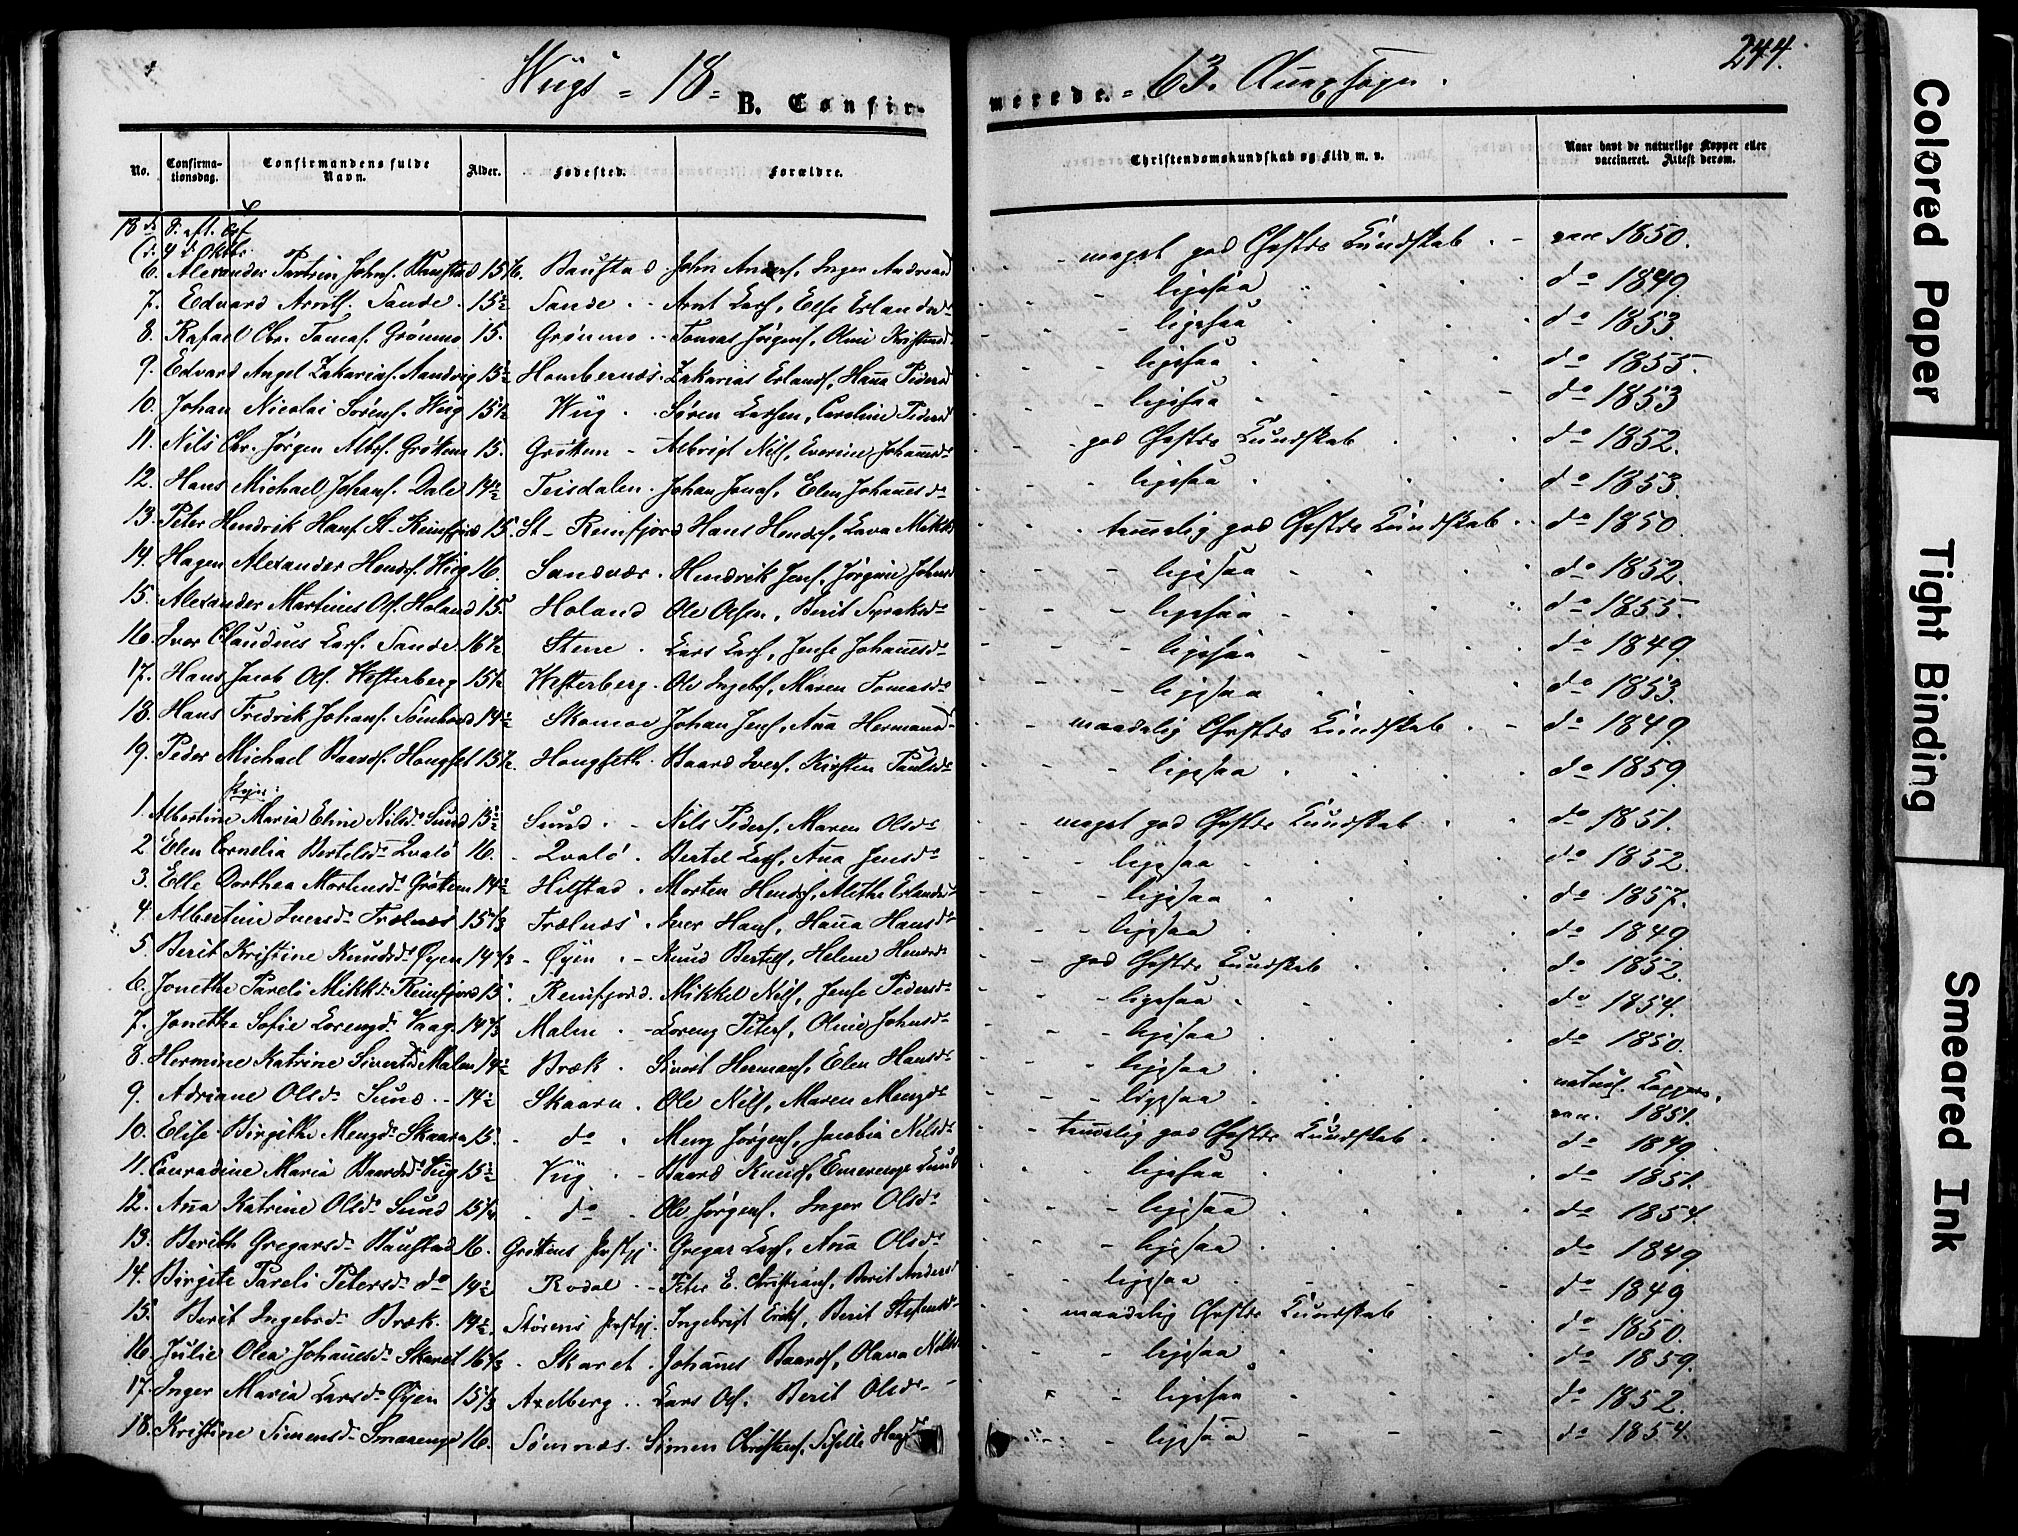 244.
Wiigs = 18 = B. Confir- merede. = 63. Anex sogn.
No. Confirma-tionsdag. Confirmandens fulde Navn. Alder. Fødested. Forældre. Christendomskundskab og Flid m. v. Naar havt de naturlige Kopper eller vaccineret. Attest derom.
18 d. S. eft.
(d. 4 d. Oktbr.
6. Alexander Johns. Baustad 15 Baustad John Anders, Inger Andreasd meget god Chrstds Kundskab vacc 1850.
7. Edvard Arntss. Sande 15½ Sande Arnt Lars, Else Erlandsd ligesaa do 1849.
8. Rafael Chr. Tomas. Grönmo 15. Grönmo Tomas Jörgens, Oline Kristensd ligesaa do 1853.
9. Edvard Angel Zakarias. Aandvig 15½ Hombernæs Zakarias Erlands, Hana Pedersd ligesaa do 1855.
10. Johan Nicolai Sørens. Wiig 15½ Wiig Søren Larsen, Caroline Pedersd ligesaa do 1853
11. Nils Chr. Jørgen Albr. Gröttem 15. Gröttem Albrigt Nils, Everine Johannesd god Chrstds Kundskab do 1852.
12. Hans Michael Johans. Dale 14½ Teisdalen Johan Jonas, Elen Johannesd ligesaa do 1853.
13. Peter Hendrik Hans. St. Reinsfjord 15. St. Reinsfjord Hans Hendrs, Lava Mikk temelig god Chrstds Kundskab do 1850
14. Hagen Alexander Hendr. Wiig 16. Sandvær Hendrik Jens, Jørgine Johnsd ligesaa do 1852.
15. Alexander Martines Ols. Holand 15 Holand Ole Olsen, Berit Syraksd ligesaa do 1855.
16. Iver Claudius Lars. Sande 16½ Stene Lars Lars, Jense Johannesd ligesaa do 1849.
17. Hans Jacob Ols. Westerberg 15½ Westerberg Ole Ingebrs, Maren Tomasd ligesaa do 1853.
18. Hans Fredrik Johans. 14½ Skomoe Johan Jens, Ana Hermansd maadelig Chrstds Kundskab do 1849.
19. Peder Michael Baards. Hougset 15½ Hougseth Baard Ivers, Kirsten Paulsd ligesaa do 1859.
Piger:
1. Albertine Maria Eline Nilsd. Sund 15½ Sund Nils Peders, Maren Olsd meget god Chrstds Kundskab do 1851.
2 Elen Cornelia Bertelsd. Qvalö 16. Qvalö Bertel Lars, Ana Jensd ligesaa do 1852.
3. Elle Dorthea Mortensd. Gröttem 14½ Hilstad Morten Hendrs, Alethe Erlandsd ligesaa do 1857.
4. Albertine Iversd. Trælnæs 15⅔ Trælnæs Iver Hans, Hana Hansd ligesaa do 1849
5. Berit Kristine Knudsd. Øyen 14⅔ Øyen Knud Bertels, Helene Hendrd god Chrstds Kundskab do 1852.
6. Jonethe Pareli Mikk. Reinsfjord 15. Reinsfjord Mikkel Nils, Jense Pedersd ligesaa do 1854.
7. Jonetha Sofie Lorengd. Vaag 14⅔ Malm Loreng Peters, Oline Johnsd ligesaa do 1850.
8. Hermine Katrine Sivertsd. Malm 14½ Bræk Sivert Hermans, Elen Hansd ligesaa naturl. Kopper.
9. Adriane Olsd. Sund 14½ Skaarn Ole Nils, Maren Mengd ligesaa vac. 1851.
10. Elise Birgithe Mengd. Skaarn 15. do Meng Jørgens, Jacobia Nilsd temelig god Chrstds Kundskab do 1849
11. Conradine Maria Baardsd. Wiig 15½ Viig Baard Knuds, Emerenge ligesaa do 1851.
12. Ana Katrine Olsd. Sund 15 do Ole Jørgens. Inger Olsd ligesaa do 1854.
13. Berith Gregarsd. Baustad 16. Grötens Prstgj. Gregar Lars, Ana Olsd ligesaa do 1849
14. Birgite Pareli Petersd. do 14½ Rodal Peter E. Christians, Berit Andersd ligesaa do 1849
15. Berit Ingebrd. Bræk. 14½ Störens Prstgj. Ingebrigt Eriks, Berit Stefensd maadelig Chrstds Kundskab do 1850.
16. Julie Olea Johannesd. Skaret 16⅓ Skaret Johannes Baards, Olava Nilsd ligesaa do 1859.
17. Inger Maria Larsd. Øyen 15⅓ Axelberg Lars Ols. Berit Olsd ligesaa do 1852.
18. Kristine Simensd. Smaaenge 16. Sömnæs. Simen Christens, Sifelle ligesaa do 1854.
Colored Paper
Tight Binding
Smeared Ink